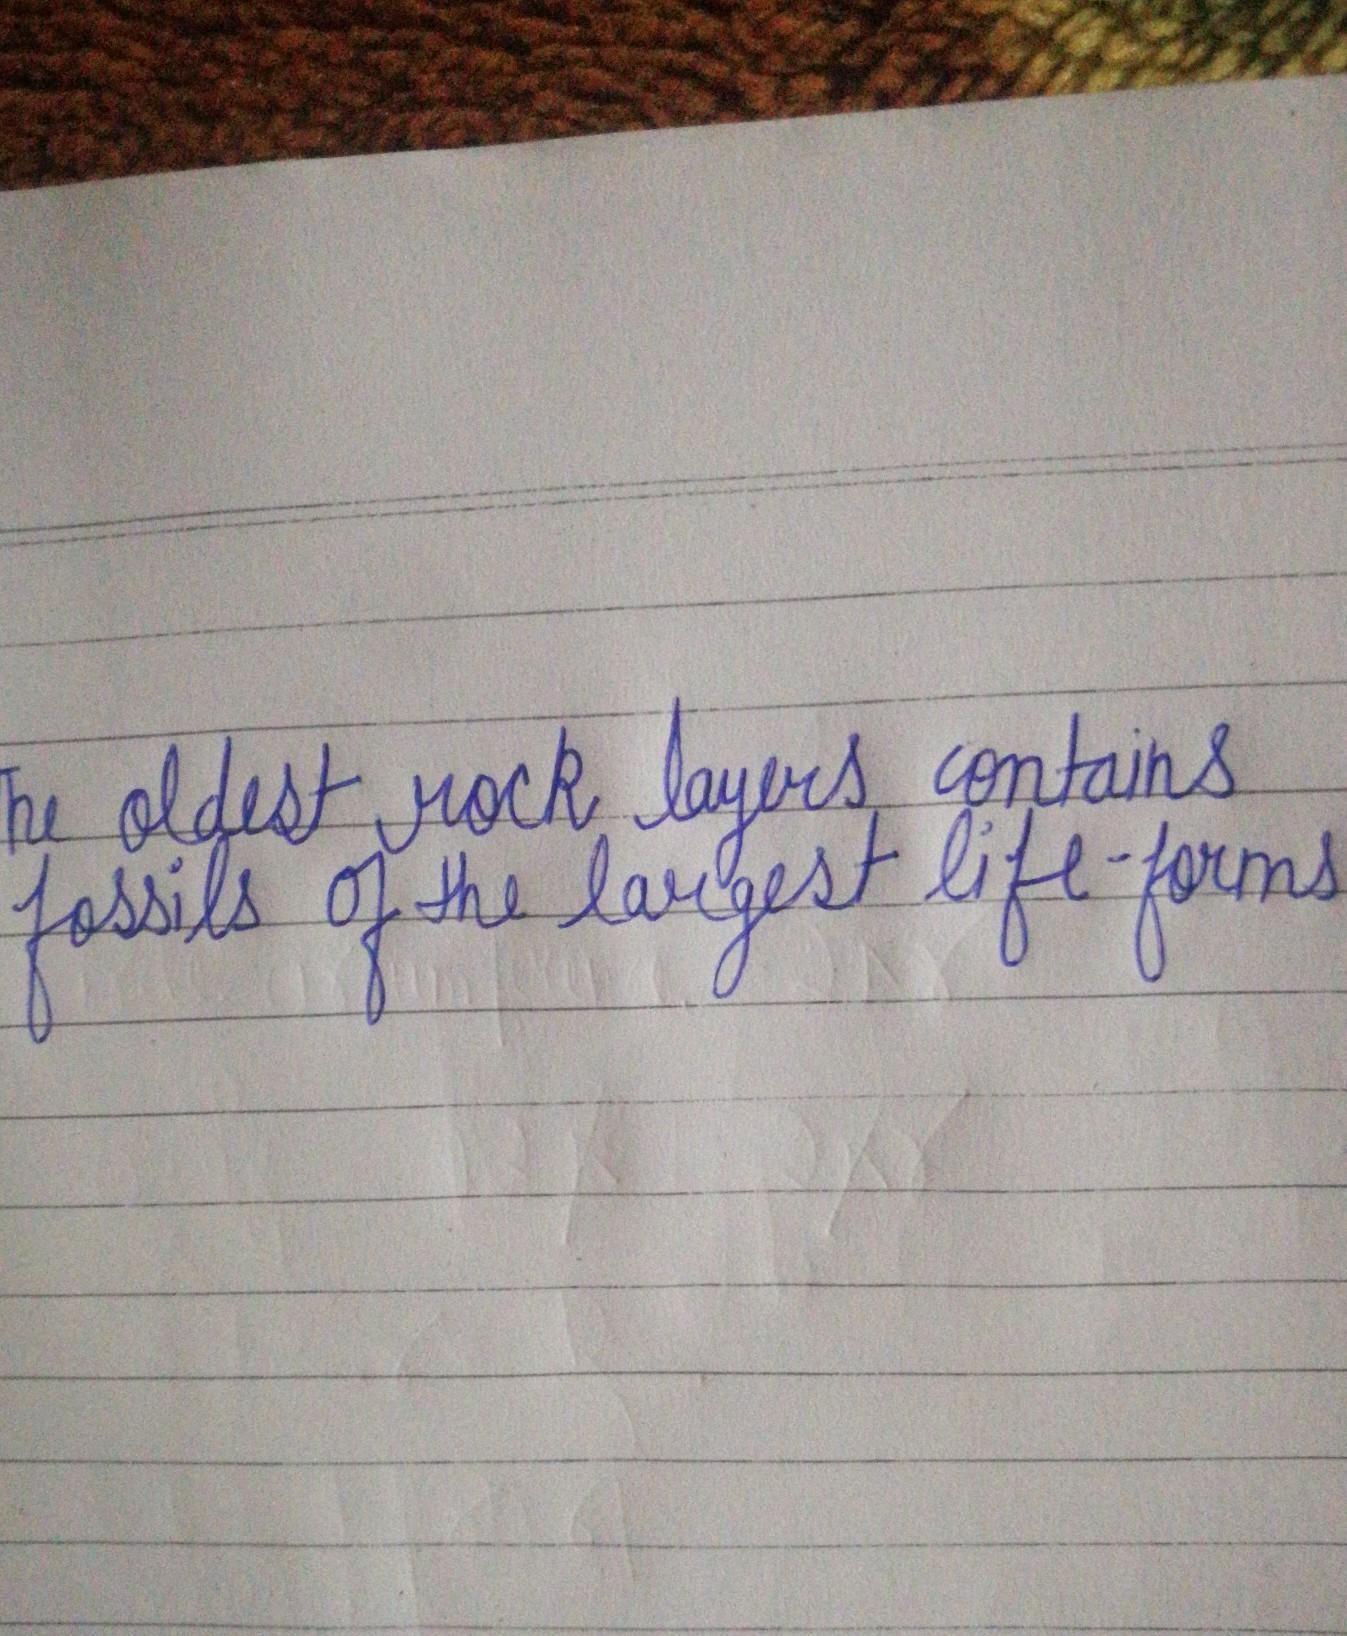 The oldest rock layers contains
fossils of the largest life-forms